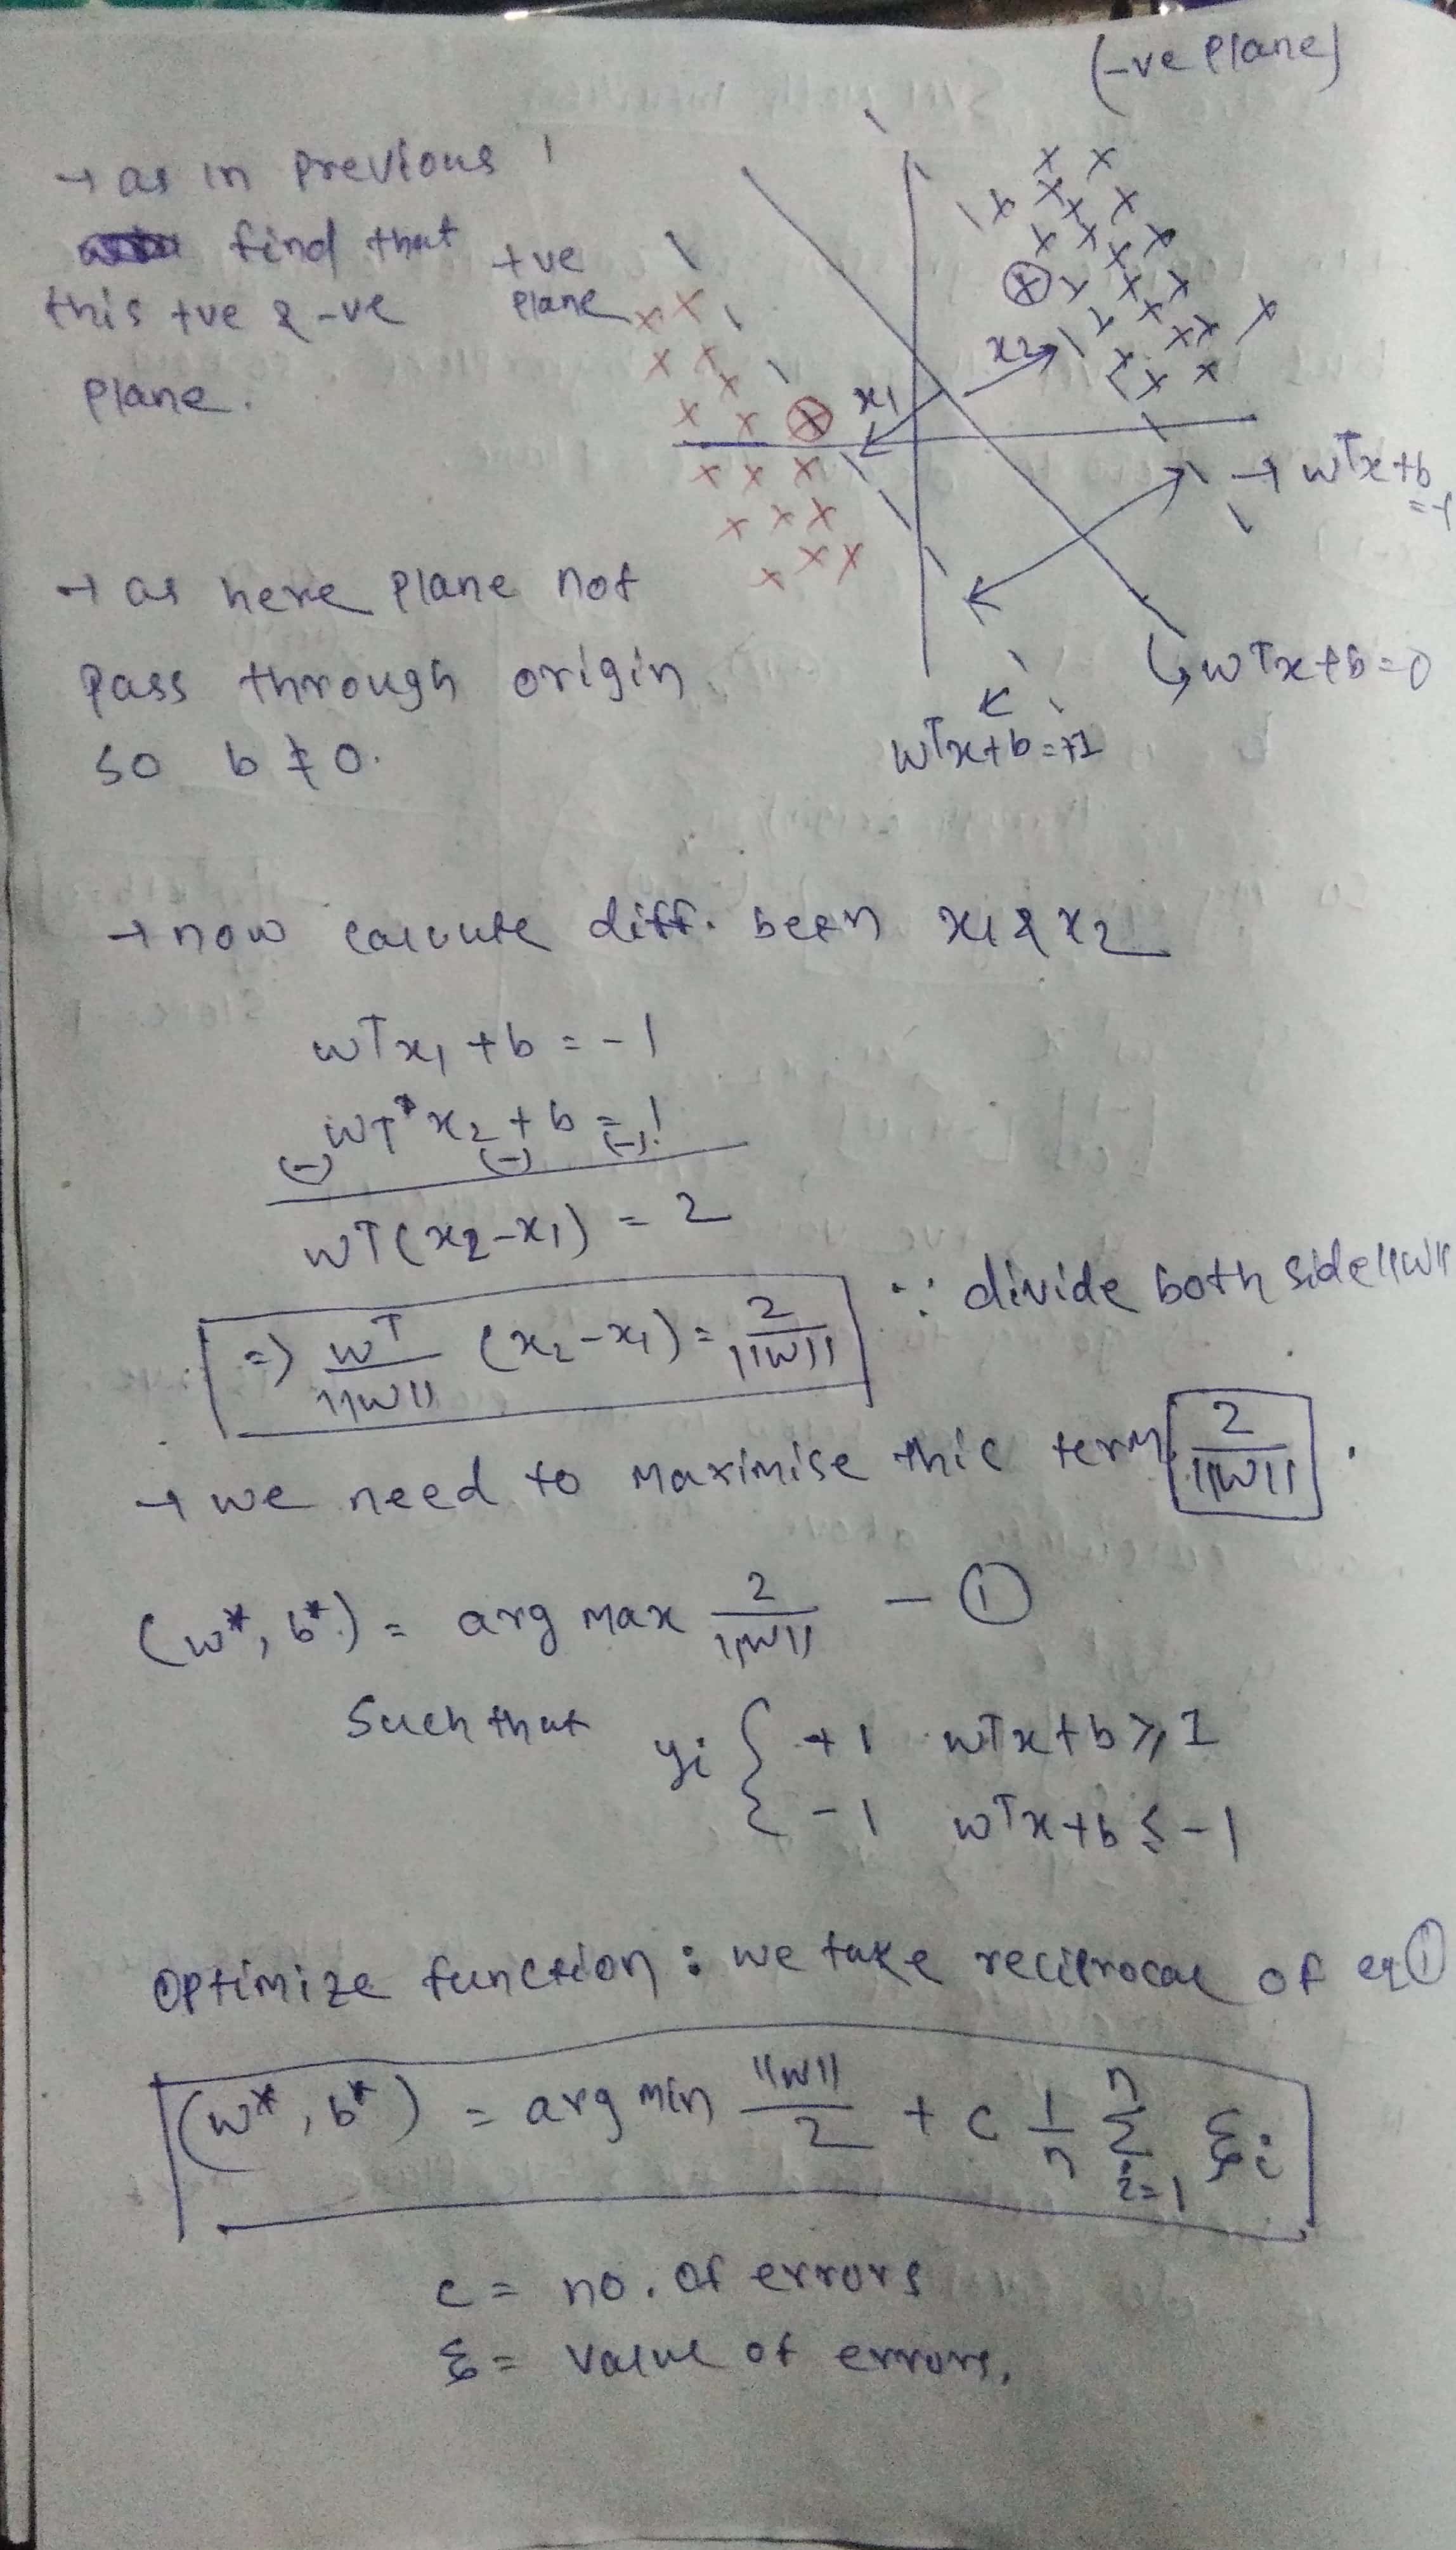 (-ve plane)
→ as in previous
find that
this +ve & -ve
plane.
+ve
plane
x2
x1
→ wTx+b
= -1
→ as here plane not
pass through origin
so b ≠ 0.
↳ wTx+b=0
wTx+b=+1
→ now calcute diff. been x1 & x2
wTx1 + b = -1
wT x2 + b = 1
(-) (-) (-)
wT(x2-x1) = 2
=> wT/||w|| (x2-x1) = 2/||w|| ∵ divide both side ||w||
→ we need to maximise this term 2/||w|| .
(w*, b*) = arg max 2/||w|| - ①
Such that yi { +1 wTx+b ≥ 1
-1 wTx+b ≤ -1
optimize function : we take reciprocal of eq ①
(w*, b*) = arg min ||w||/2 + c 1/n Σ i=1 n ξi
c = no. of errors
ξ = value of errors.